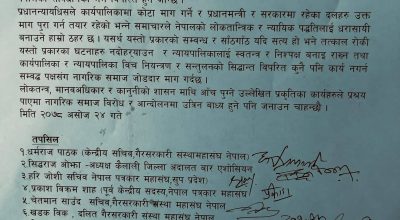 प्रधानन्यायधिसले कार्यपालिकामा कोटा माग गर्ने र प्रधानमन्त्री र सरकारमा रहेका दलहरु उक्त
माग पुरा गर्न तयार रहेको भन्ने समाचारले नेपालको लोकतान्त्रिक र न्यायिक पद्दतिलाई धरासायी
बनाउने हाम्रो ठहर छ। यसर्थ यस्तो प्रकारको सम्बन्ध र साँठगाँठ यदि सत्य हो भने तत्काल रोकी
यस्तो प्रकारका घटनाहरु नदोहर्‍याउन र न्यायपालिकालाई स्वतन्त्र र निष्पक्ष बनाई राख्न तथा
कार्यपालिका र न्यायपालिका बिच नियन्त्रण र सन्तुलनको सिद्धान्त विपरित कुनै पनि कार्य नगर्न
सम्वद्ध पक्षसंग नागरिक समाज जोडदार माग गर्दछ।
लोकतन्त्र, मानवअधिकार र कानुनीको शासन माथि आँच पुग्ने उल्लेखित प्रकृतिका कार्यहरुले प्रश्रय
पाएमा नागरिक समाज बिरोध र आन्दोलनमा उत्रिन बाध्य हुने पनि जनाउन चाहन्छौं।
मिति २०७८ असोज २४ गते
तपसिल
१. धर्मराज पाठक (केन्द्रीय सचिव, गैरसरकारी संस्थामहासंघ नेपाल)
२. सिद्धराज ओझा - अध्यक्ष कैलाली जिल्ला अदालत वार एशोसियन
३. हरि जोशी सचिव नेपाल पत्रकार महासंघ, सुप प्रदेश)
४. प्रकाश विक्रम शाह (पूर्व केन्द्रीय सदस्य, नेपाल पत्रकार महासंघ
५. चेतमान साउद सचिव, गैरसरकारी संस्था महासंघ नेपाल)
६. खडक विक , दलित गैरसरकारी संस्था महासंघ